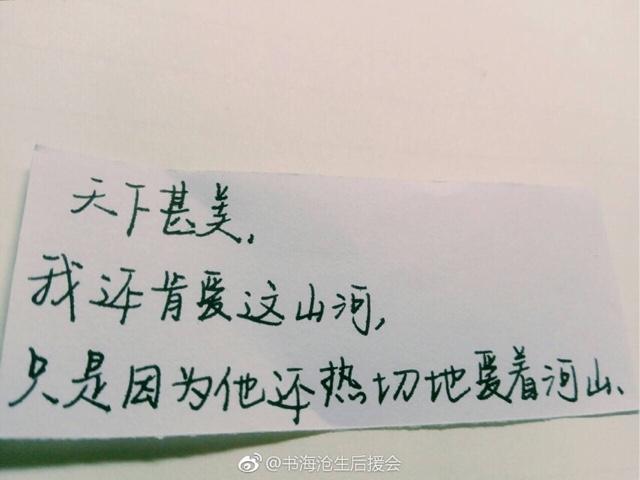 天下甚美,
我还肯爱这山河,
只是因为他还热切地爱着河山、
@书海沧生后援会